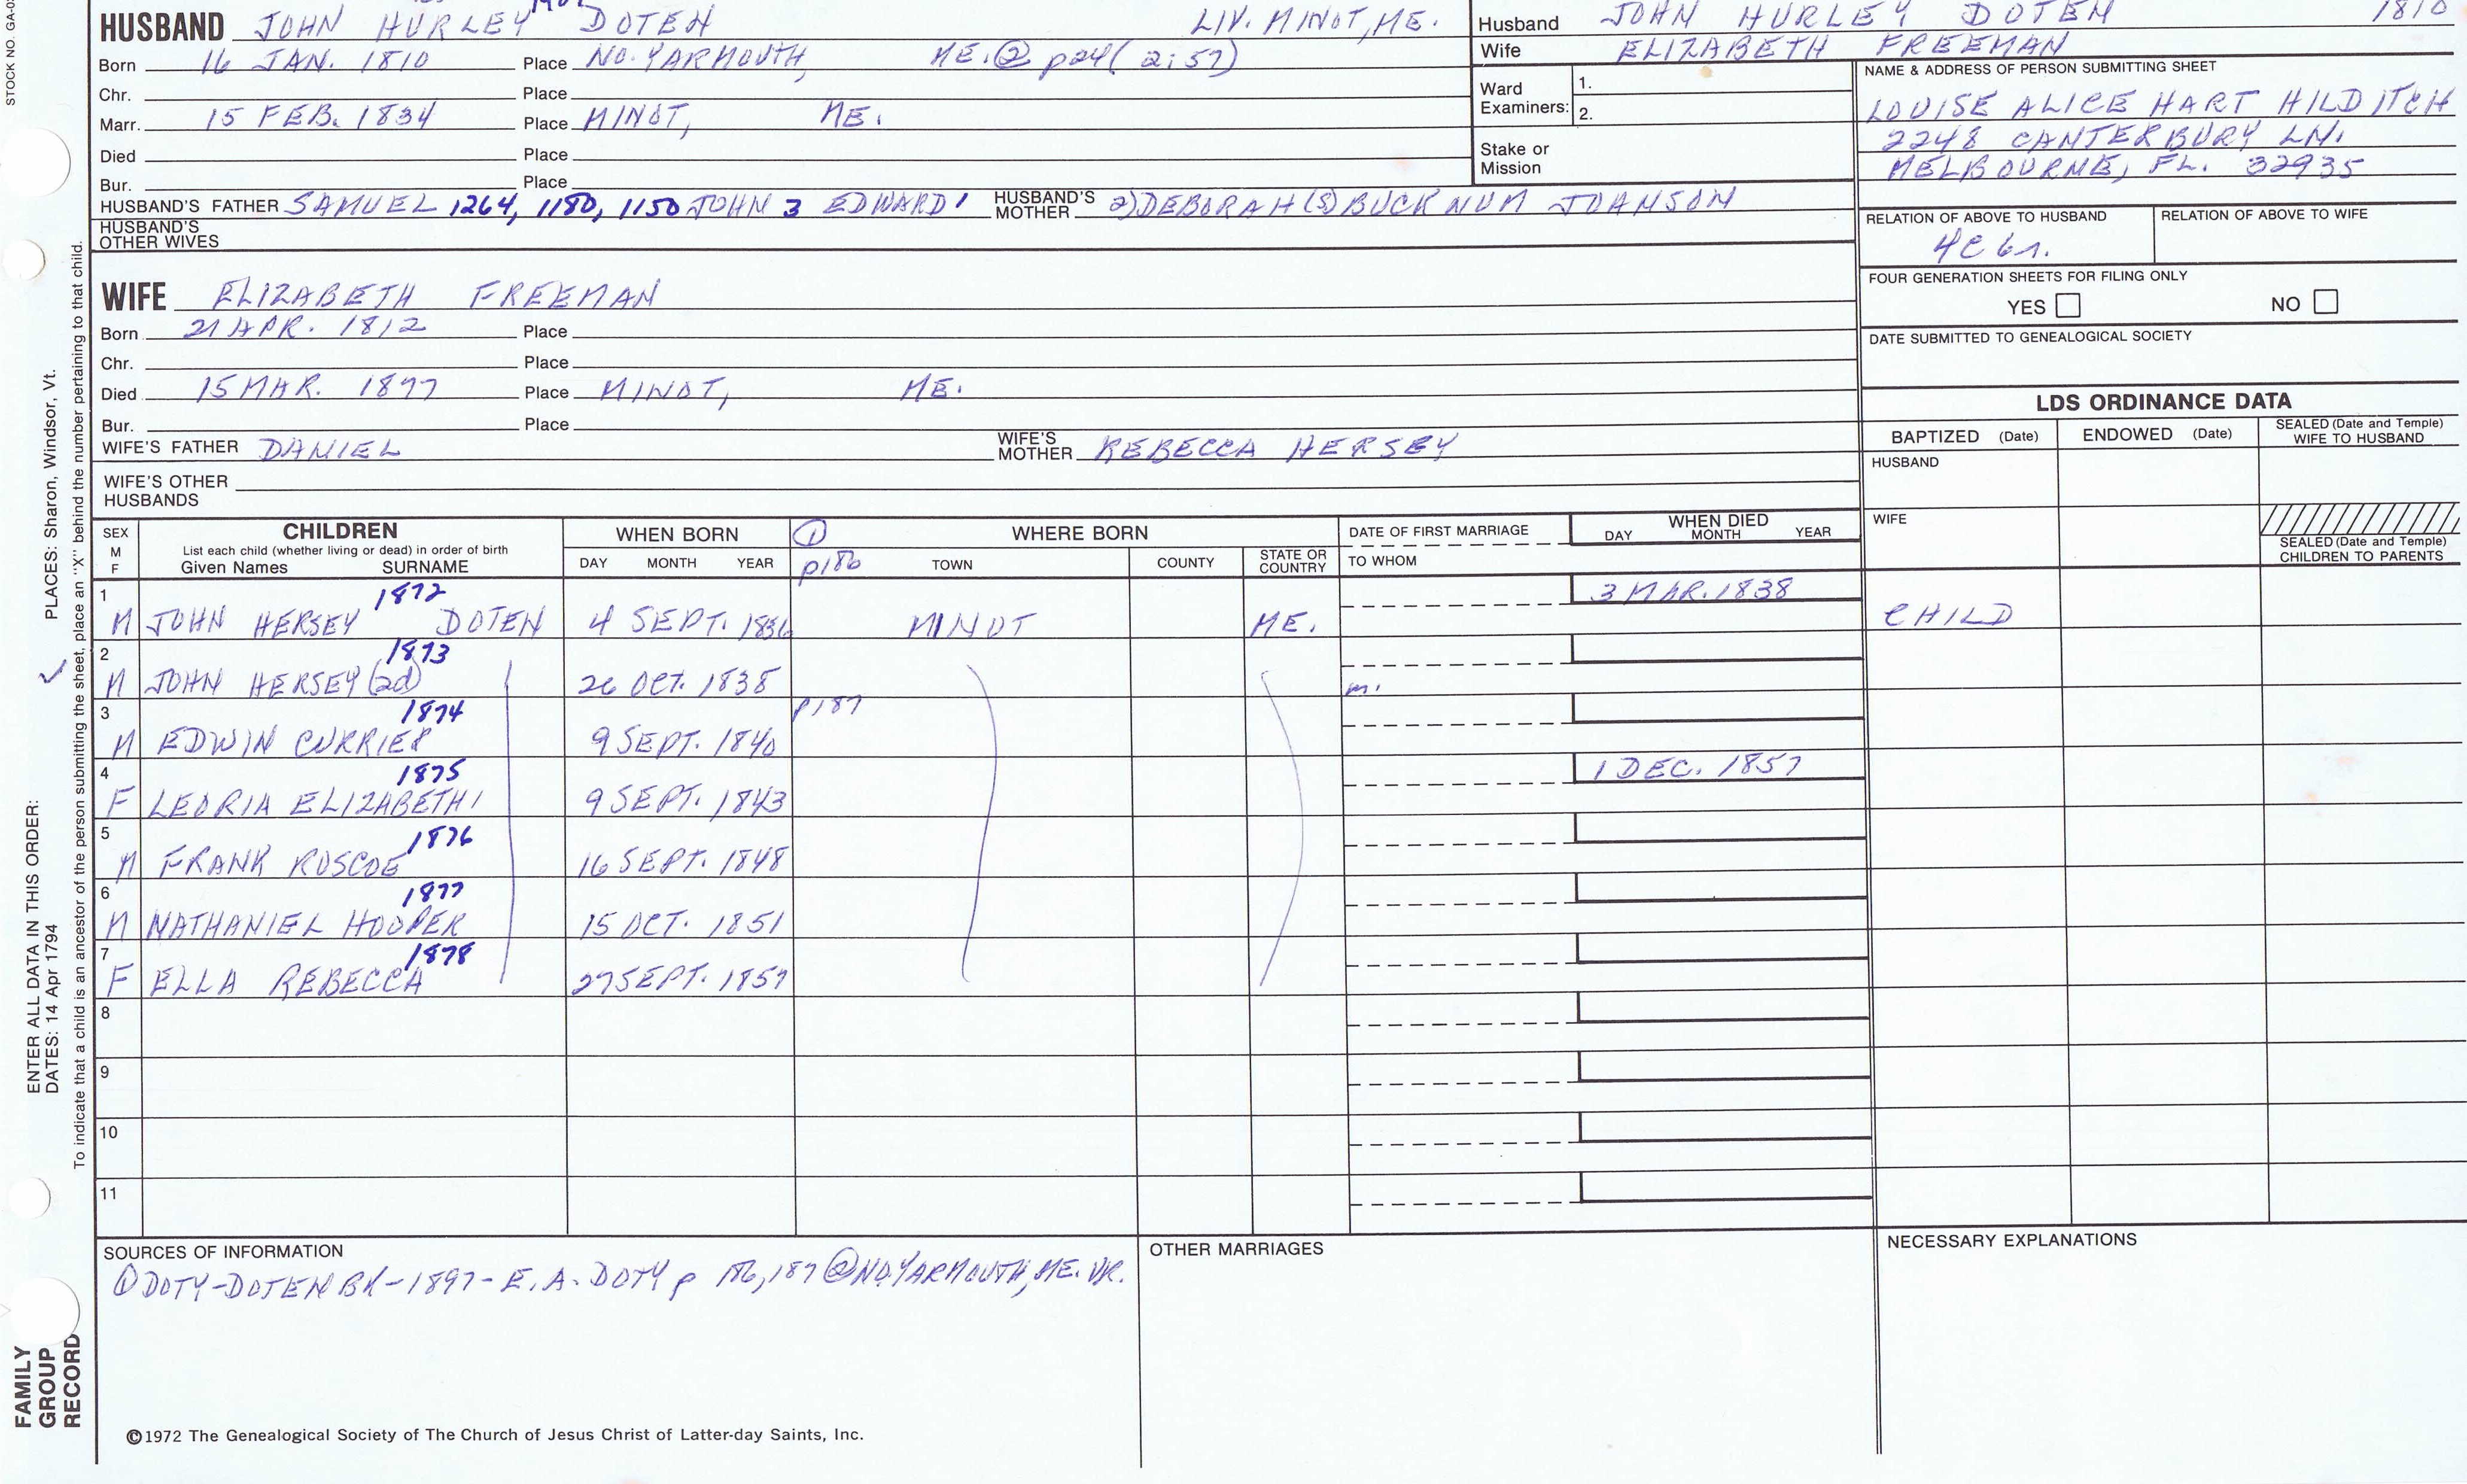 STOCK NO. GA-0
HUSBAND JOHN HURLEY DOTEN LIV. MINOT, ME.
Born 16 JAN. 1810 Place NO. YARMOUTH, ME. ② p24(2:57)
Chr. Place
Marr. 15 FEB. 1834 Place MINOT, ME.
Died Place
Bur. Place
HUSBAND'S FATHER SAMUEL 1264, 1180, 1150 JOHN 3 EDWARD 1 HUSBAND'S MOTHER 2) DEBORAH (S) BUCKNUM JOHNSON
HUSBAND'S OTHER WIVES
WIFE ELIZABETH FREEMAN
Born 21 APR. 1812 Place
Chr. Place
Died 15 MAR. 1877 Place MINOT, ME.
Bur. Place
WIFE'S FATHER DANIEL WIFE'S MOTHER REBECCA HERSEY
WIFE'S OTHER HUSBANDS
Husband JOHN HURLEY DOTEN 1810
Wife ELIZABETH FREEMAN
Ward Examiners: 1.
2.
Stake or Mission
NAME & ADDRESS OF PERSON SUBMITTING SHEET
LOUISE ALICE HART HILDITCH
2248 CANTERBURY LN.
MELBOURNE, FL. 32935
RELATION OF ABOVE TO HUSBAND RELATION OF ABOVE TO WIFE
4C 6r.
FOUR GENERATION SHEETS FOR FILING ONLY
YES NO
DATE SUBMITTED TO GENEALOGICAL SOCIETY
LDS ORDINANCE DATA
BAPTIZED (Date) ENDOWED (Date) SEALED (Date and Temple) WIFE TO HUSBAND
HUSBAND
WIFE
SEALED (Date and Temple) CHILDREN TO PARENTS
SEX M F CHILDREN WHEN BORN ① WHERE BORN DATE OF FIRST MARRIAGE WHEN DIED
List each child (whether living or dead) in order of birth
Given Names SURNAME DAY MONTH YEAR p186 TOWN COUNTY STATE OR COUNTRY TO WHOM DAY MONTH YEAR
1 1872 3 MAR. 1838
M JOHN HERSEY DOTEN 4 SEPT. 1836 MINOT ME. CHILD
2 1873
M JOHN HERSEY (2d) 26 OCT. 1838 m.
3 1874 p187
M EDWIN CURRIER 9 SEPT. 1840
4 1875 1 DEC. 1857
F LEORIA ELIZABETH 9 SEPT. 1843
5 1876
M FRANK ROSCOE 16 SEPT. 1848
6 1877
M NATHANIEL HOOPER 15 OCT. 1851
7 1878
F ELLA REBECCA 27 SEPT. 1857
8
9
10
11
SOURCES OF INFORMATION
① DOTY-DOTEN BK-1897- E. A. DOTY p 186, 187 ② NO. YARMOUTH, ME. VR.
OTHER MARRIAGES
NECESSARY EXPLANATIONS
©1972 The Genealogical Society of The Church of Jesus Christ of Latter-day Saints, Inc.
FAMILY GROUP RECORD
ENTER ALL DATA IN THIS ORDER:
DATES: 14 Apr 1794 PLACES: Sharon, Windsor, Vt.
To indicate that a child is an ancestor of the person submitting the sheet, place an "X" behind the number pertaining to that child.